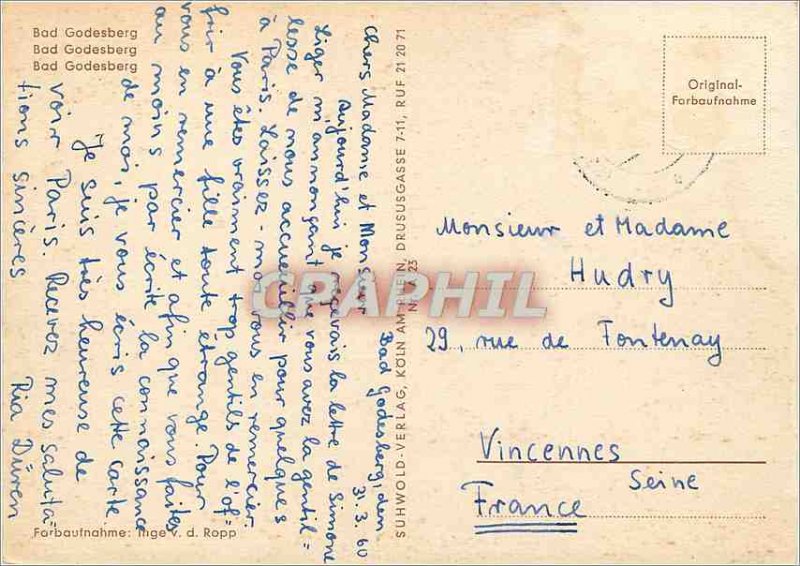 Bad Godesberg
Bad Godesberg
Bad Godesberg
Bad Godesberg, den
31.3.60
Chers Madame et Monsieur
Aujourd'hui je recevais la lettre de Simone
Liger m'annonçant que vous avez la gentil=
lesse de nous accueillir pour quelques
à Paris. Laissez-moi vous en remercier.
Vous êtes vraiment trop gentils de l'of=
frir à une fille toute etrange. Pour
vous en remercier et afin que vous faites
au moins par écrite la connaissance
de moi, je vous écris cette carte
Je suis très heureuse de
voir Paris. Recevez mes saluta=
tions sincères
Ria Düren
Farbaufnahme: Inge v. d. Ropp
SÜHWOLD-VERLAG, KÖLN AM RHEIN, DRUSUSGASSE 7-11, RUF 21 20 71
23
Original-
Farbaufnahme
Monsieur et Madame
Hudry
29, rue de Fontenay
Vincennes
Seine
France
CPAPHIL